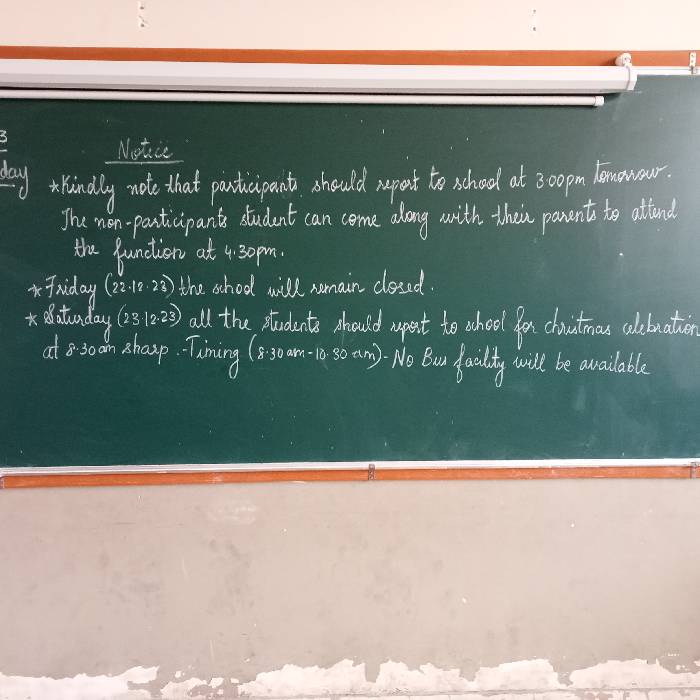 3
day
Notice
* Kindly note that participants should report to school at 3.00pm tomorrow.
The non-participants student can come along with their parents to attend
the function at 4.30pm.
* Friday (22.12.23) the school will remain closed.
* Saturday (23.12.23) all the students should report to school for christmas celebration
at 8.30am sharp. -Timing (8.30am-10.30am)- No Bus facility will be available